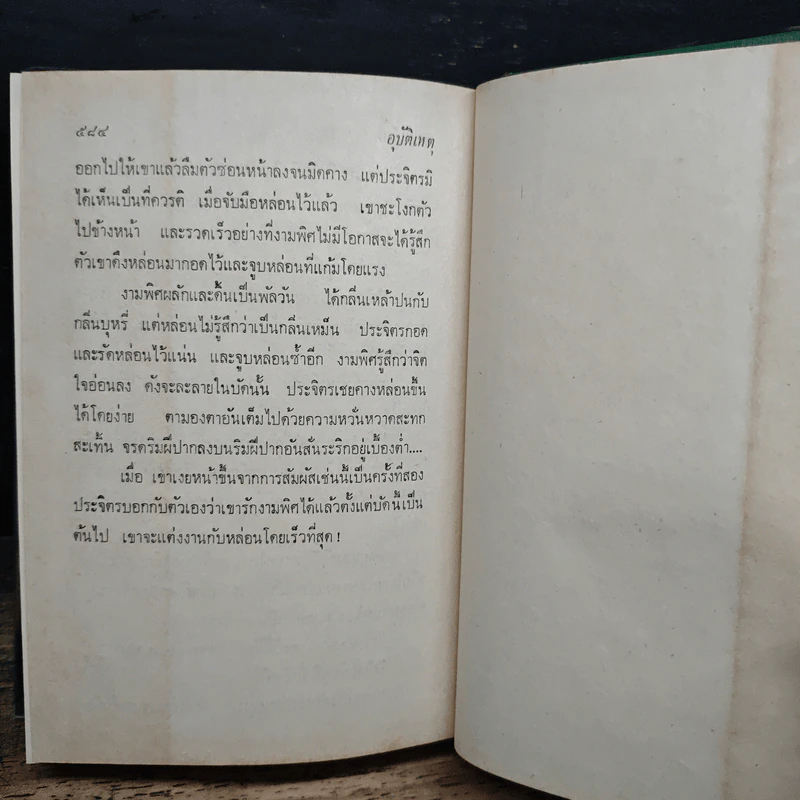 ๕๘๔
อุบัติเหตุ
ออกไปให้เขาแล้วลืมตัวซ่อนหน้าลงจนมิดคาง แต่ประจิตรมิ
ได้เห็นเป็นที่ควรติ เมื่อจับมือหล่อนไว้แล้ว เขาชะโงกตัว
ไปข้างหน้า และรวดเร็วอย่างที่งามพิศไม่มีโอกาสจะได้รู้สึก
ตัวเขาดึงหล่อนมากอดไว้และจูบหล่อนที่แก้มโดยแรง
งามพิศผลักและดิ้นเป็นพัลวัน ได้กลิ่นเหล้าปนกับ
กลิ่นบุหรี่ แต่หล่อนไม่รู้สึกว่าเป็นกลิ่นเหม็น ประจิตรกอด
และรัดหล่อนไว้แน่น และจูบหล่อนซ้ำอีก งามพิศรู้สึกว่าจิต
ใจอ่อนลง ดังจะละลายในบัดนั้น ประจิตรเชยคางหล่อนขึ้น
ได้โดยง่าย ตามองตาอันเต็มไปด้วยความหวั่นหวาดสะทก
สะเทิ้น จรดริมฝีปากลงบนริมฝีปากอันสั่นระริกอยู่เบื้องต่ำ....
เมื่อ เขาเงยหน้าขึ้นจากการสัมผัสเช่นนี้เป็นครั้งที่สอง
ประจิตรบอกกับตัวเองว่าเขารักงามพิศได้แล้วตั้งแต่บัดนี้เป็น
ต้นไป เขาจะแต่งงานกับหล่อนโดยเร็วที่สุด !